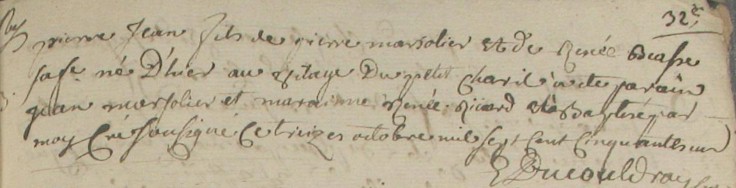 32e
pierre Jean fils de pierre marsolier et de Renée
sa fe né D'hier au vilage Du petit a ete parain
jean marsolier et maraine Renée Ricard et a Baptisé par
moy Curé Sousigné Ce treize octobre mil sept Cent Cinquante un
Ducouldray